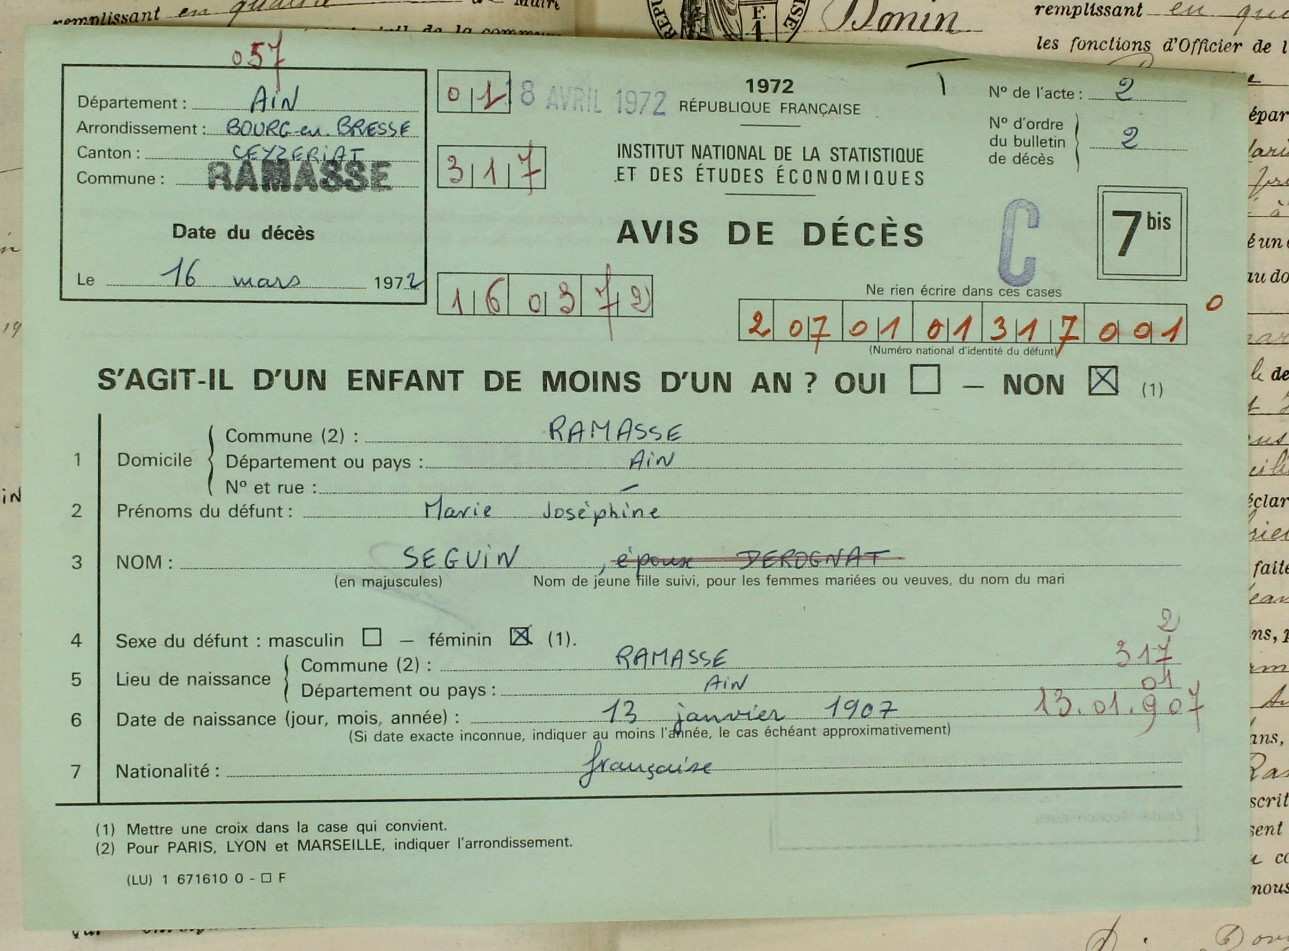 remplissant en qualité de Maire
remplissant en qua
les fonctions d'Officier de l
Donin
F.
1
057
Département : AIN
Arrondissement : BOURG-en-BRESSE
Canton : CEYZERIAT
Commune : RAMASSE
Date du décès
Le 16 mars 1972
01
8 AVRIL 1972
317
160372
1972
RÉPUBLIQUE FRANÇAISE
INSTITUT NATIONAL DE LA STATISTIQUE
ET DES ÉTUDES ÉCONOMIQUES
AVIS DE DÉCÈS
N° de l'acte : 2
N° d'ordre
du bulletin
de décès 2
C
7 bis
Ne rien écrire dans ces cases
2 07 01 01 317 001 0
(Numéro national d'identité du défunt)
S'AGIT-IL D'UN ENFANT DE MOINS D'UN AN ? OUI ☐ — NON ☒ (1)
1 Domicile
Commune (2) : RAMASSE
Département ou pays : AIN
N° et rue : –
2 Prénoms du défunt : Marie Joséphine
3 NOM : SEGUIN , époux DEROGNAT
(en majuscules) Nom de jeune fille suivi, pour les femmes mariées ou veuves, du nom du mari
4 Sexe du défunt : masculin ☐ — féminin ☒ (1).
2
5 Lieu de naissance
Commune (2) : RAMASSE 317
Département ou pays : AIN 01
6 Date de naissance (jour, mois, année) : 13 janvier 1907 13.01.907
(Si date exacte inconnue, indiquer au moins l'année, le cas échéant approximativement)
7 Nationalité : française
(1) Mettre une croix dans la case qui convient.
(2) Pour PARIS, LYON et MARSEILLE, indiquer l'arrondissement.
(LU) 1 671610 0 - ☐ F